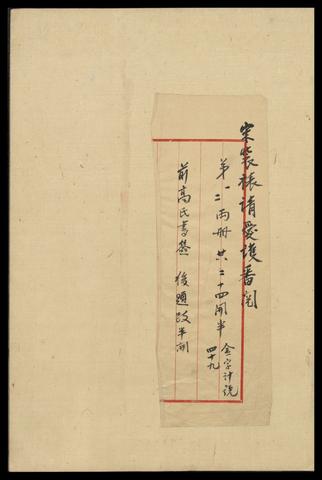 宋裝裱請愛護番閱
第一二兩冊共二十四開半
全字計說
四十九
前高氏書 後題跋半開